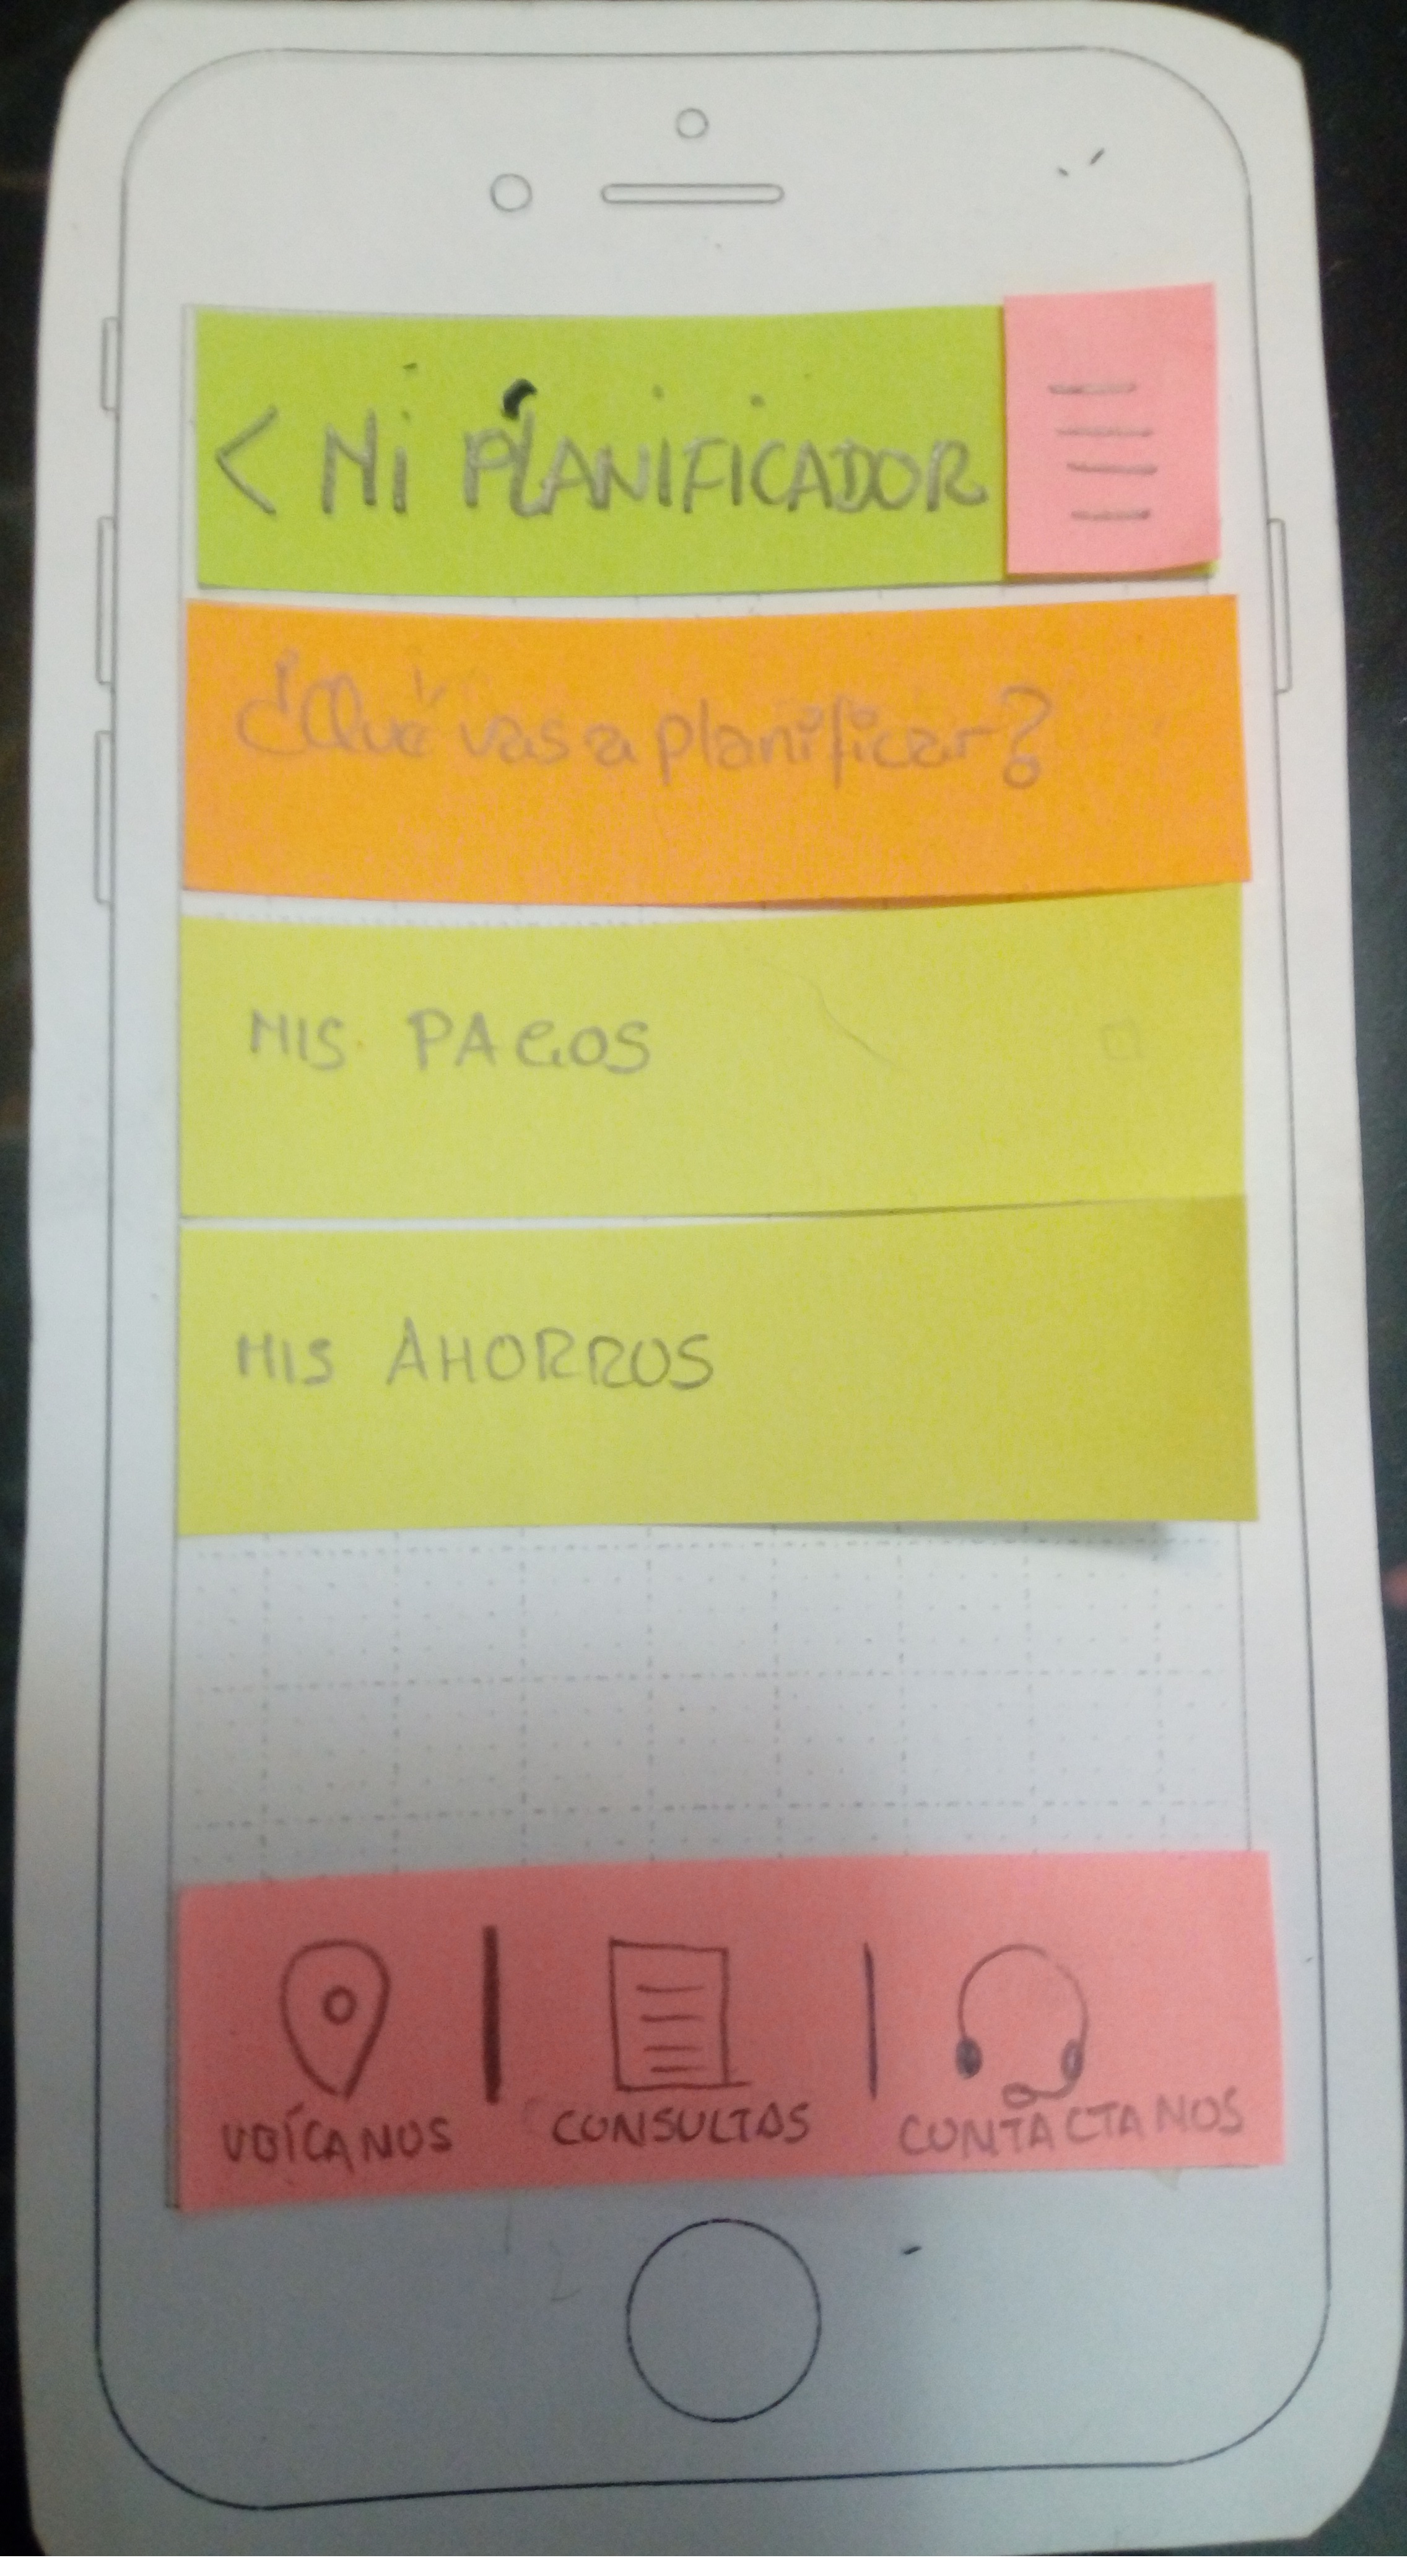 < Mi PLANIFICADOR
¿Qué vas a planificar?
MIS PAGOS
MIS AHORROS
UBÍCANOS CONSULTAS CONTACTANOS